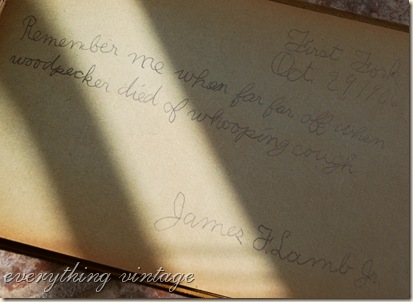 First Fork
Oct. 29
Remember me when far far off when
woodpecker died of whooping cough
James F. Lamb Jr.
everything vintage